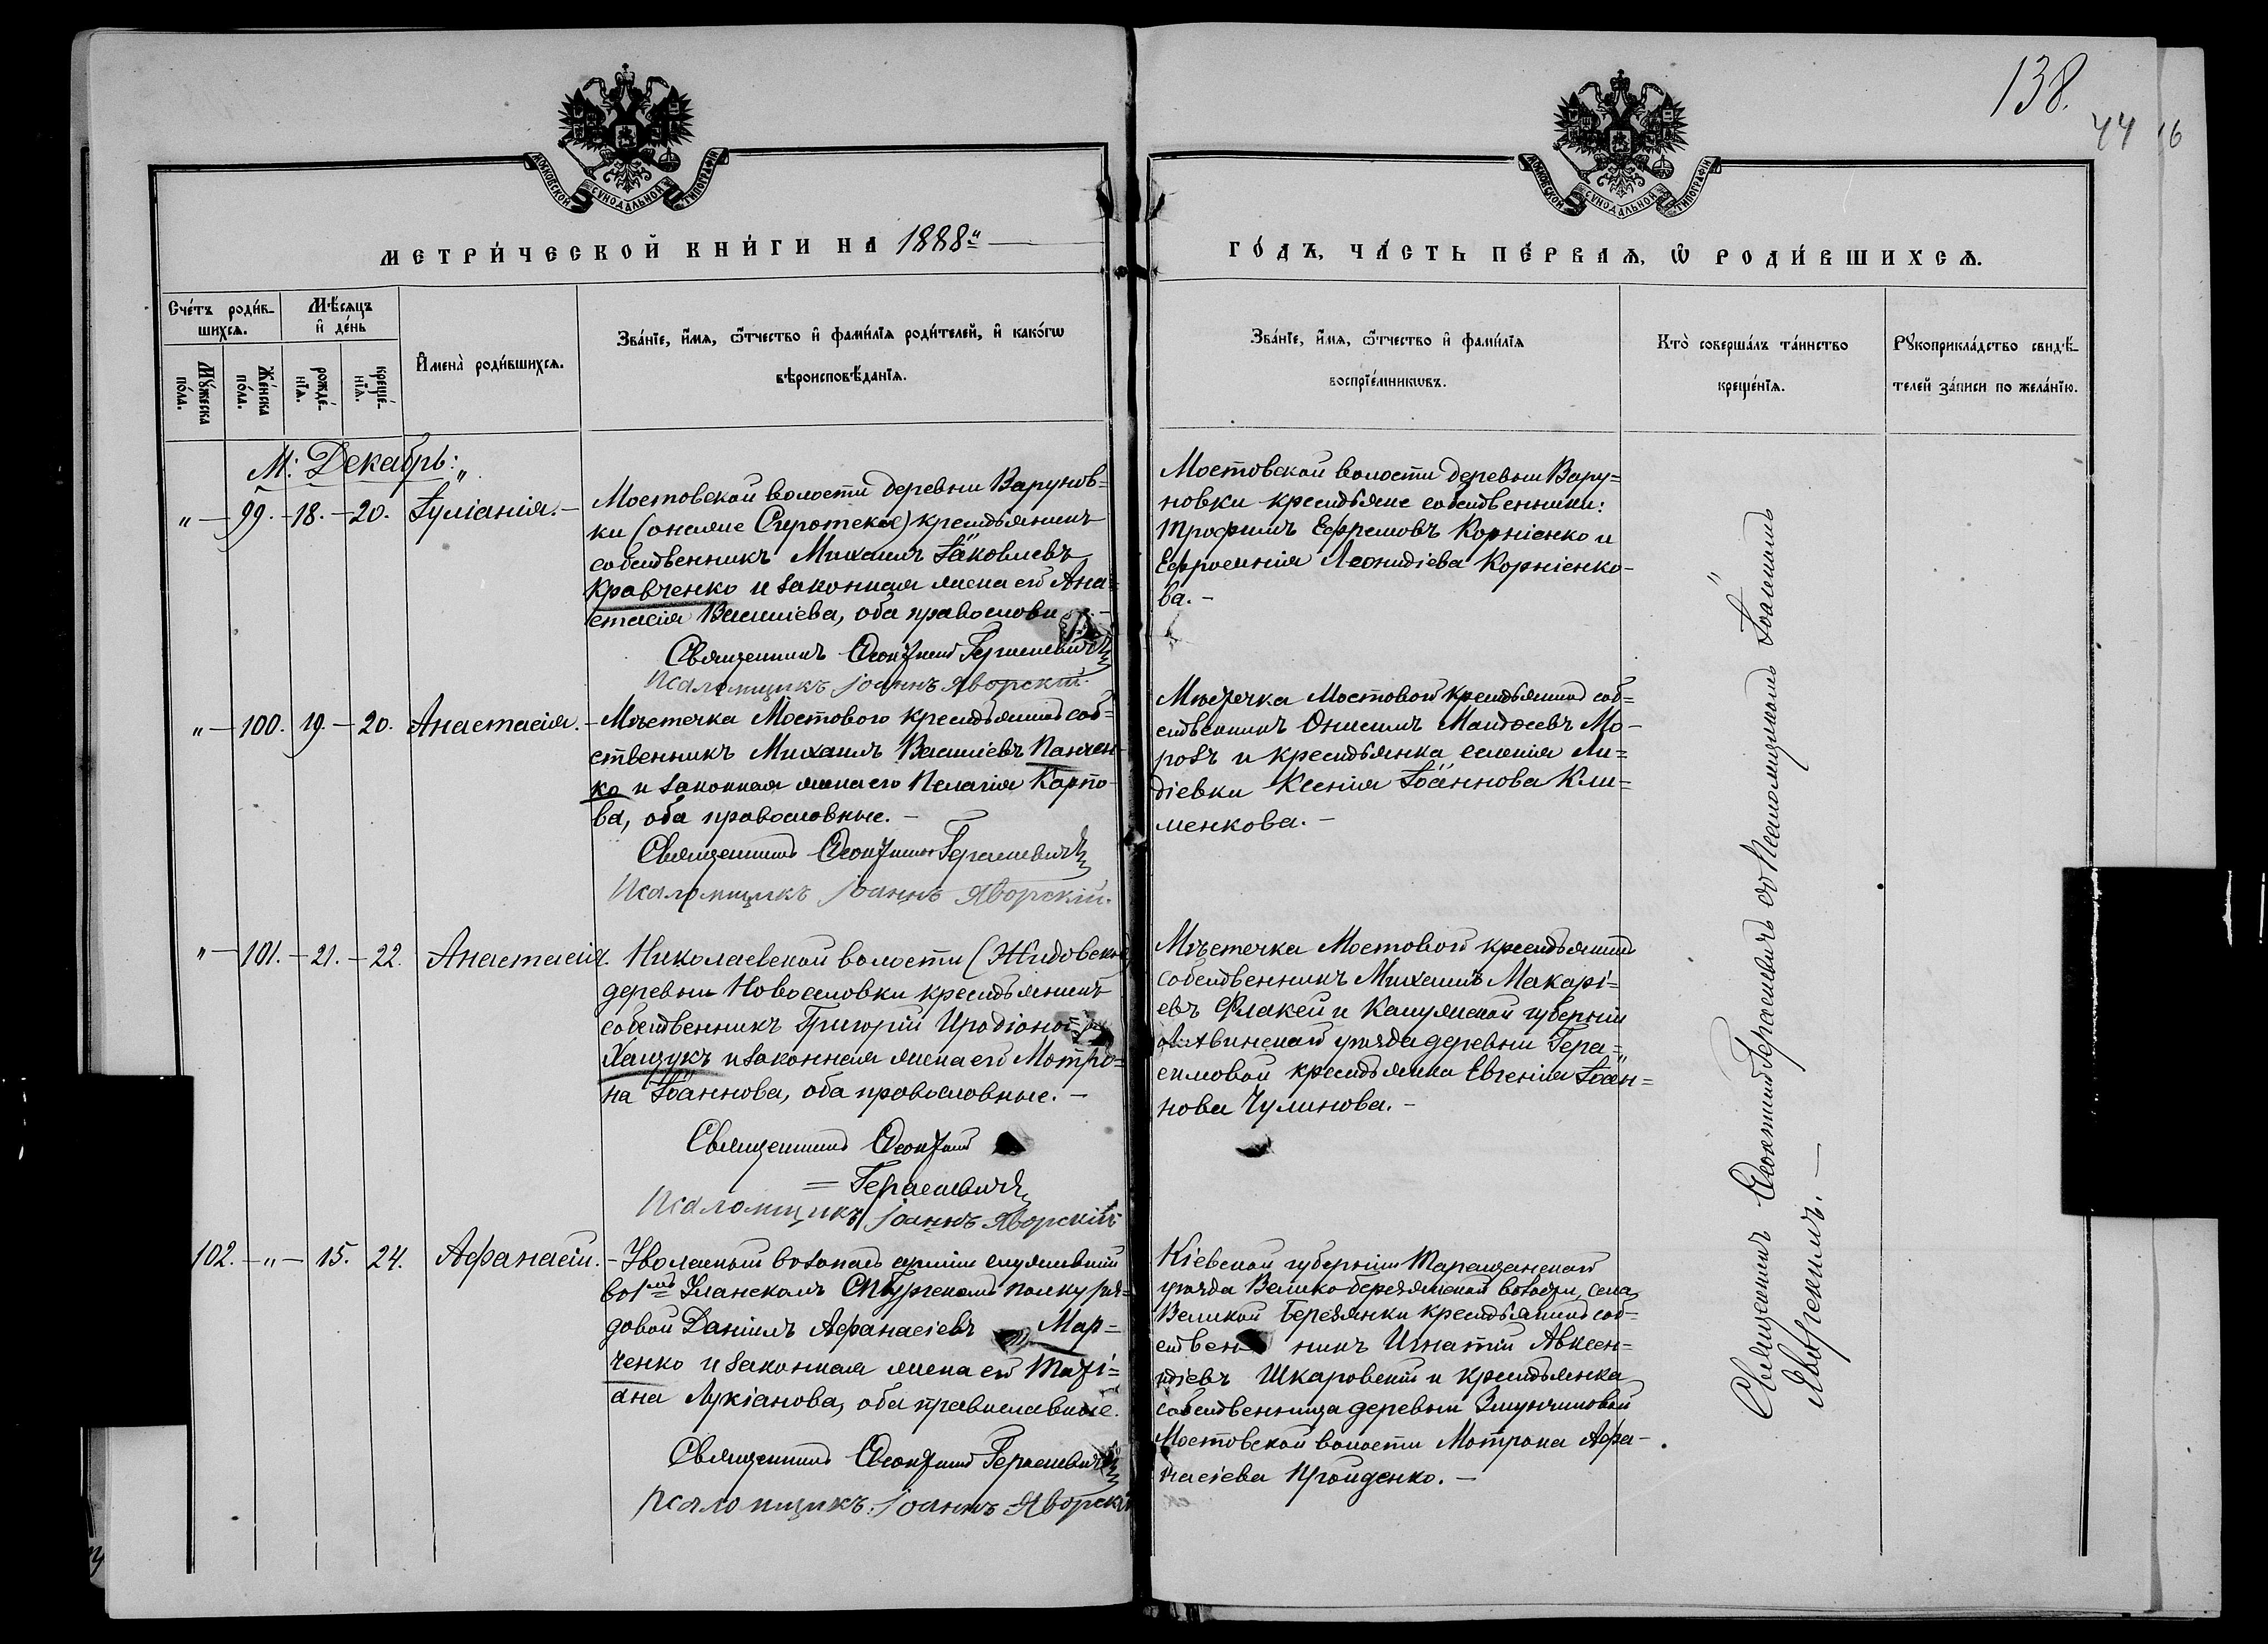 138.
44
16
МОСКОВСКОЙ СѴНОДАЛЬНОЙ ТИПОГРАФІИ
МОСКОВСКОЙ СѴНОДАЛЬНОЙ ТИПОГРАФІИ
МЕТРИ́ЧЕСКОЙ КНИ́ГИ НА 1888й
ГО́ДЪ, ЧА́СТЬ ПЕ́РВАѦ, Ѡ҆ РОДИ́ВШИХСѦ.
Сче́тъ роди́в-
шихсѧ.
Мꙋ́жеска
по́ла.
Же́нска
по́ла.
Мѣ́сѧцъ
и҆ де́нь
рожде́-
нїѧ.
креще́-
нїѧ.
И҆мена̀ роди́вшихсѧ.
Зва́нїе, и҆́мѧ, ѻ҆́тчество и҆ фами́лїѧ роди́телей, и҆ како́гѡ
вѣроисповѣ́данїѧ.
Зва́нїе, и҆́мѧ, ѻ҆́тчество и҆ фами́лїѧ
воспрїе́мникѡвъ.
Кто̀ соверша́лъ та́инство
креще́нїѧ.
Рꙋкоприкла́дство свидѣ́-
телей за́писи по жела́нїю.
М: Декабрь:
" — 99. — 18. — 20. Іуліанія. —
Мостовской волости деревни Варунов=
ки (онаяже Сиротская) крестьянинъ
собственникъ Михаилъ Іаковлевъ
Кравченко и законная жена его Ана=
стасія Василіева, оба православн
Священникъ Ѳеоктистъ Герасневичъ
Псаломщикъ Іоаннъ Яворскій.
Мостовской волости деревни Вару=
новки крестьяне собственники:
Трофимъ Ефремовъ Корніенко и
Ефросинія Леонидіева Корніенко-
ва. —
" — 100. 19. — 20. Анастасія.
— Мѣстечка Мостового крестьянинъ соб=
ственникъ Михаилъ Василіевъ Панчен-
ко и законная жена его Пелагія Карпо-
ва, оба православные. —
Священникъ Ѳеоктистъ Герасневичъ
Псаломщикъ Іоаннъ Яворскій.
Мѣстечка Мостового крестьянинъ соб=
ственникъ Онисимъ Матѳеевъ Мо-
розъ и крестьянка селенія Ли=
діевки Ксенія Іоаннова Кли=
менкова. —
" — 101. — 21. — 22. Анастасія.
Николаевской волости (Жидовской)
деревни Новоселовки крестьянинъ
собственникъ Григорій Иродіоновъ
Хащукъ и законная жена его Мотро=
на Іоаннова, оба православные. —
Священникъ Ѳеоктистъ
= Герасневичъ
Псаломщикъ Іоаннъ Яворскій
Мѣстечка Мостового крестьянинъ
собственникъ Михаилъ Макарі=
евъ Флакей и Калужской губерніи
уѣзда деревни Гера=
симовой крестьянка Евгенія Іоан=
нова Чулинова. —
102. — " — 15. 24. Афанасій.
— Уволенный въ запасъ арміи служившій
въ 1мъ Уланскомъ СПбургскомъ полку ря=
довой Даніилъ Афанасіевъ Мар=
ченко и законная жена его Таті=
ана Лукіанова, оба православные.
Священникъ Ѳеоктистъ Герасневичъ
Псаломщикъ: Іоаннъ Яворскій
Кіевской губерніи Таращанскаго
уѣзда Велико-березянской волости, села
Великой Березянки крестьянинъ соб-
ствен никъ Игнатій Авксен=
тіевъ Шкаровскій и крестьянка
собственница деревни
Мостовской волости Мотрона Афа-
насіева Проиденко. —
Священникъ Ѳеоктистъ Герасневичъ со Псаломщикомъ Іоанномъ
Яворскимъ. —